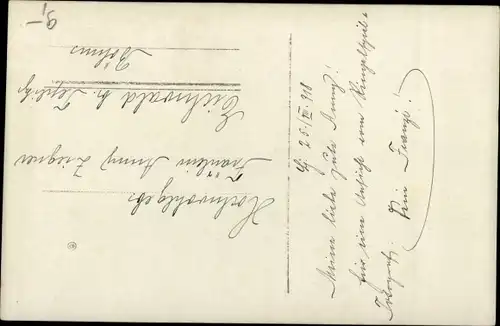 9,-
Hochwohlgeb.
Fräulein Anny Ziegner
Eichwald b. Teplitz
Böhmen
25./VI. 918
Meine liebe gute Anny!
hier eine Ansicht vom
Dein Franzi!